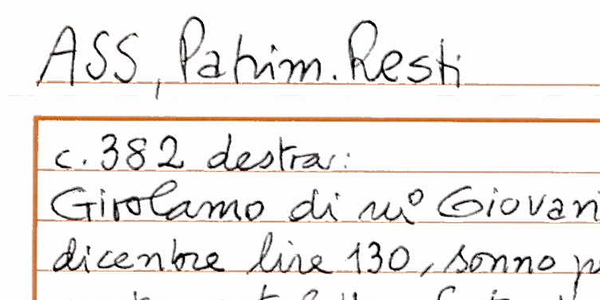 ASS, Patrim. Resti
c. 382 destra:
Girolamo di m° Giovan
dicenbre lire 130, sonno p